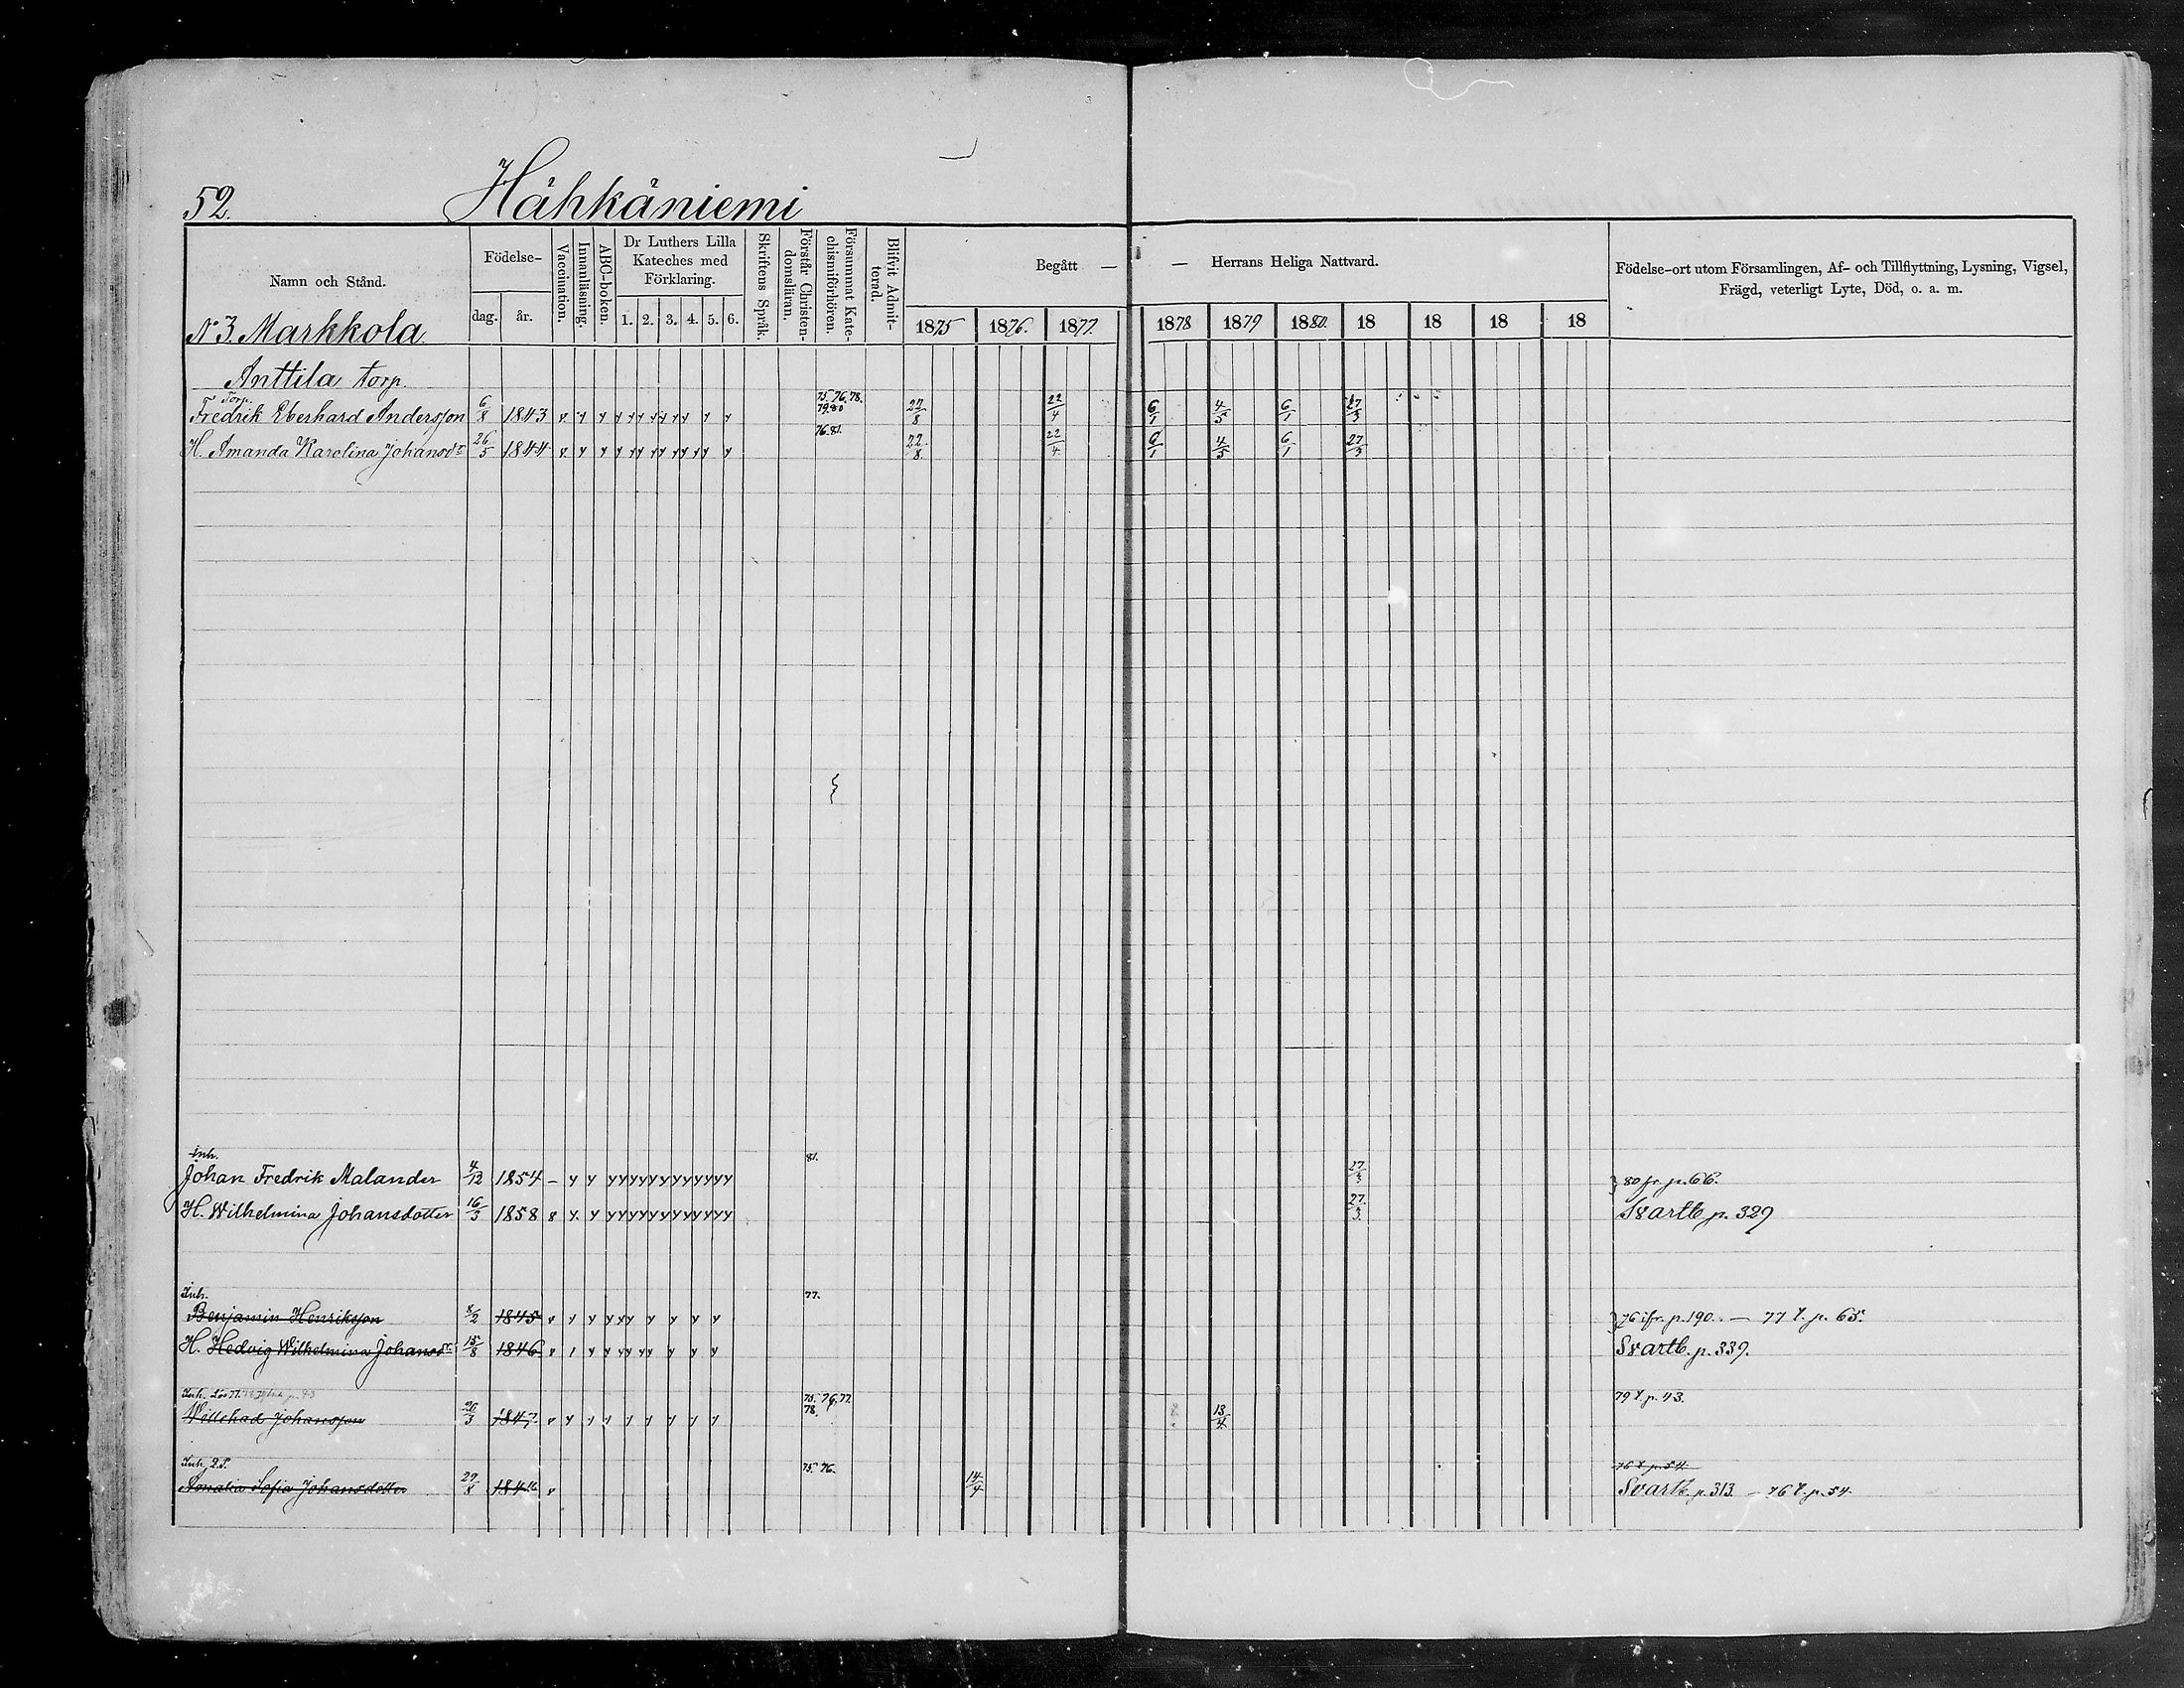 52. Hähkäniemi
Namn och Stånd.
Födelse-
dag. år.
Vaccination.
Innanläsning.
ABC-boken.
Dr Luthers Lilla
Kateches med
Förklaring.
1. 2. 3. 4. 5. 6.
Skriftens Språk.
Förstår Christen-
domsläran.
Försummat Kate-
chismiförhören.
Blifvit Admit-
terad.
Begått — — Herrans Heliga Nattvard.
1875 1876. 1877. 1878 1879 1880. 18 18 18 18
Födelse-ort utom Församlingen, Af- och Tillflyttning, Lysning, Vigsel,
Frägd, veterligt Lyte, Död, o. a. m.
No 3. Markkola.
Anttila torp.
Torp. 75. 76. 78.
Fredrik Eberhard Andersson 6/8 1843 v. y y y yy yy yy y y 79. 80 22/8 22/4 6/1 4/5 6/1 27/3
76. 81.
H. Amanda Karolina Johansdr 26/5 1844 v. y y y yy yy yy y y 22/8 22/4 6/1 4/5 6/1 27/3
Inh. 81.
Johan Fredrik Malander 4/12 1854 – y y yyyyyyyyyyyy 27/3 80 fr. p. 66.
H. Wilhelmina Johansdotter 16/3 1858 v y. y yyyyyyyyyyyy 27/3. Svartb p. 329
Inh. 77.
Benjamin Henriksson 8/2 1845 v y y y yy y y y y 76 ifr. p. 190. — 77 t. p. 65.
H. Hedvig Wilhelmina Johansdr 15/8 1846 v y y yy yy y y y Svartb. p. 339.
Inh. 75. 76. 77. 79 t. p. 43.
Willehad Johansson 26/3 1847. v y y y y y y y y 78. 13/4
Inh. 75. 76. 76 t. p. 54.
Amalia Sofia Johansdotter 27/8 1846 v 14/4 Svartb. p. 313. — 76 t. p. 54.